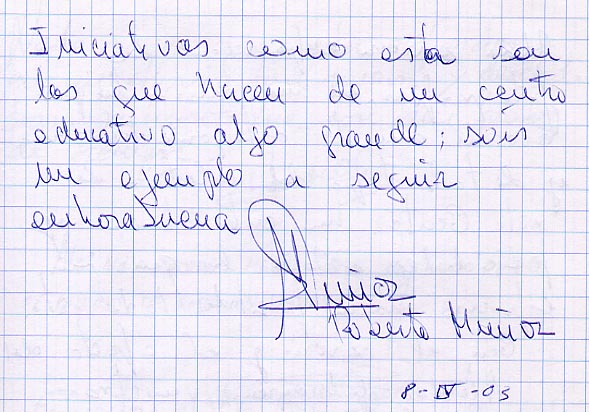 Iniciativas como esta son
las que hacen de un centro
educativo algo grande; sois
un ejemplo a seguir
enhorabuena
Muñoz
Roberto Muñoz
8-IV-05